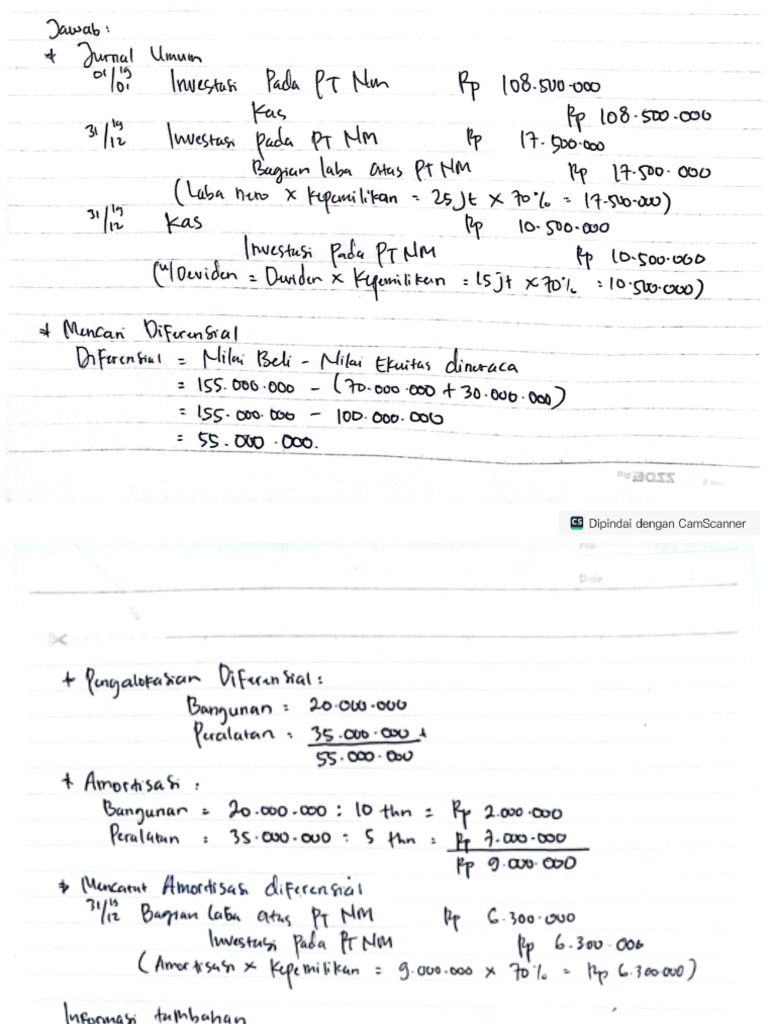 Jawab:
* Jurnal Umum
01/01 19 Investasi Pada PT NM Rp 108.500.000
Kas Rp 108.500.000
31/12 19 Investasi pada PT NM Rp 17.500.000
Bagian laba atas PT NM Rp 17.500.000
(Laba neto x Kepemilikan = 25 Jt x 70% = 17.500.000)
31/12 19 Kas Rp 10.500.000
Investasi Pada PT NM Rp 10.500.000
(u/ Deviden = Deviden x Kepemilikan = 15 jt x 70% = 10.500.000)
* Mencari Diferensial
Diferensial = Nilai Beli - Nilai Ekuitas dineraca
= 155.000.000 - (70.000.000 + 30.000.000)
= 155.000.000 - 100.000.000
= 55.000.000.
CS Dipindai dengan CamScanner
No.
Date
* Pengalokasian Diferensial:
Bangunan = 20.000.000
Peralatan = 35.000.000 +
55.000.000
* Amortisasi :
Bangunan = 20.000.000 : 10 thn = Rp 2.000.000
Peralatan : 35.000.000 : 5 thn = Rp 7.000.000
Rp 9.000.000
* Mencatat Amortisasi diferensial
31/12 19 Bagian laba atas PT NM Rp 6.300.000
Investasi Pada PT NM Rp 6.300.000
(Amortisasi x Kepemilikan = 9.000.000 x 70% = Rp 6.300.000)
Informasi tambahan